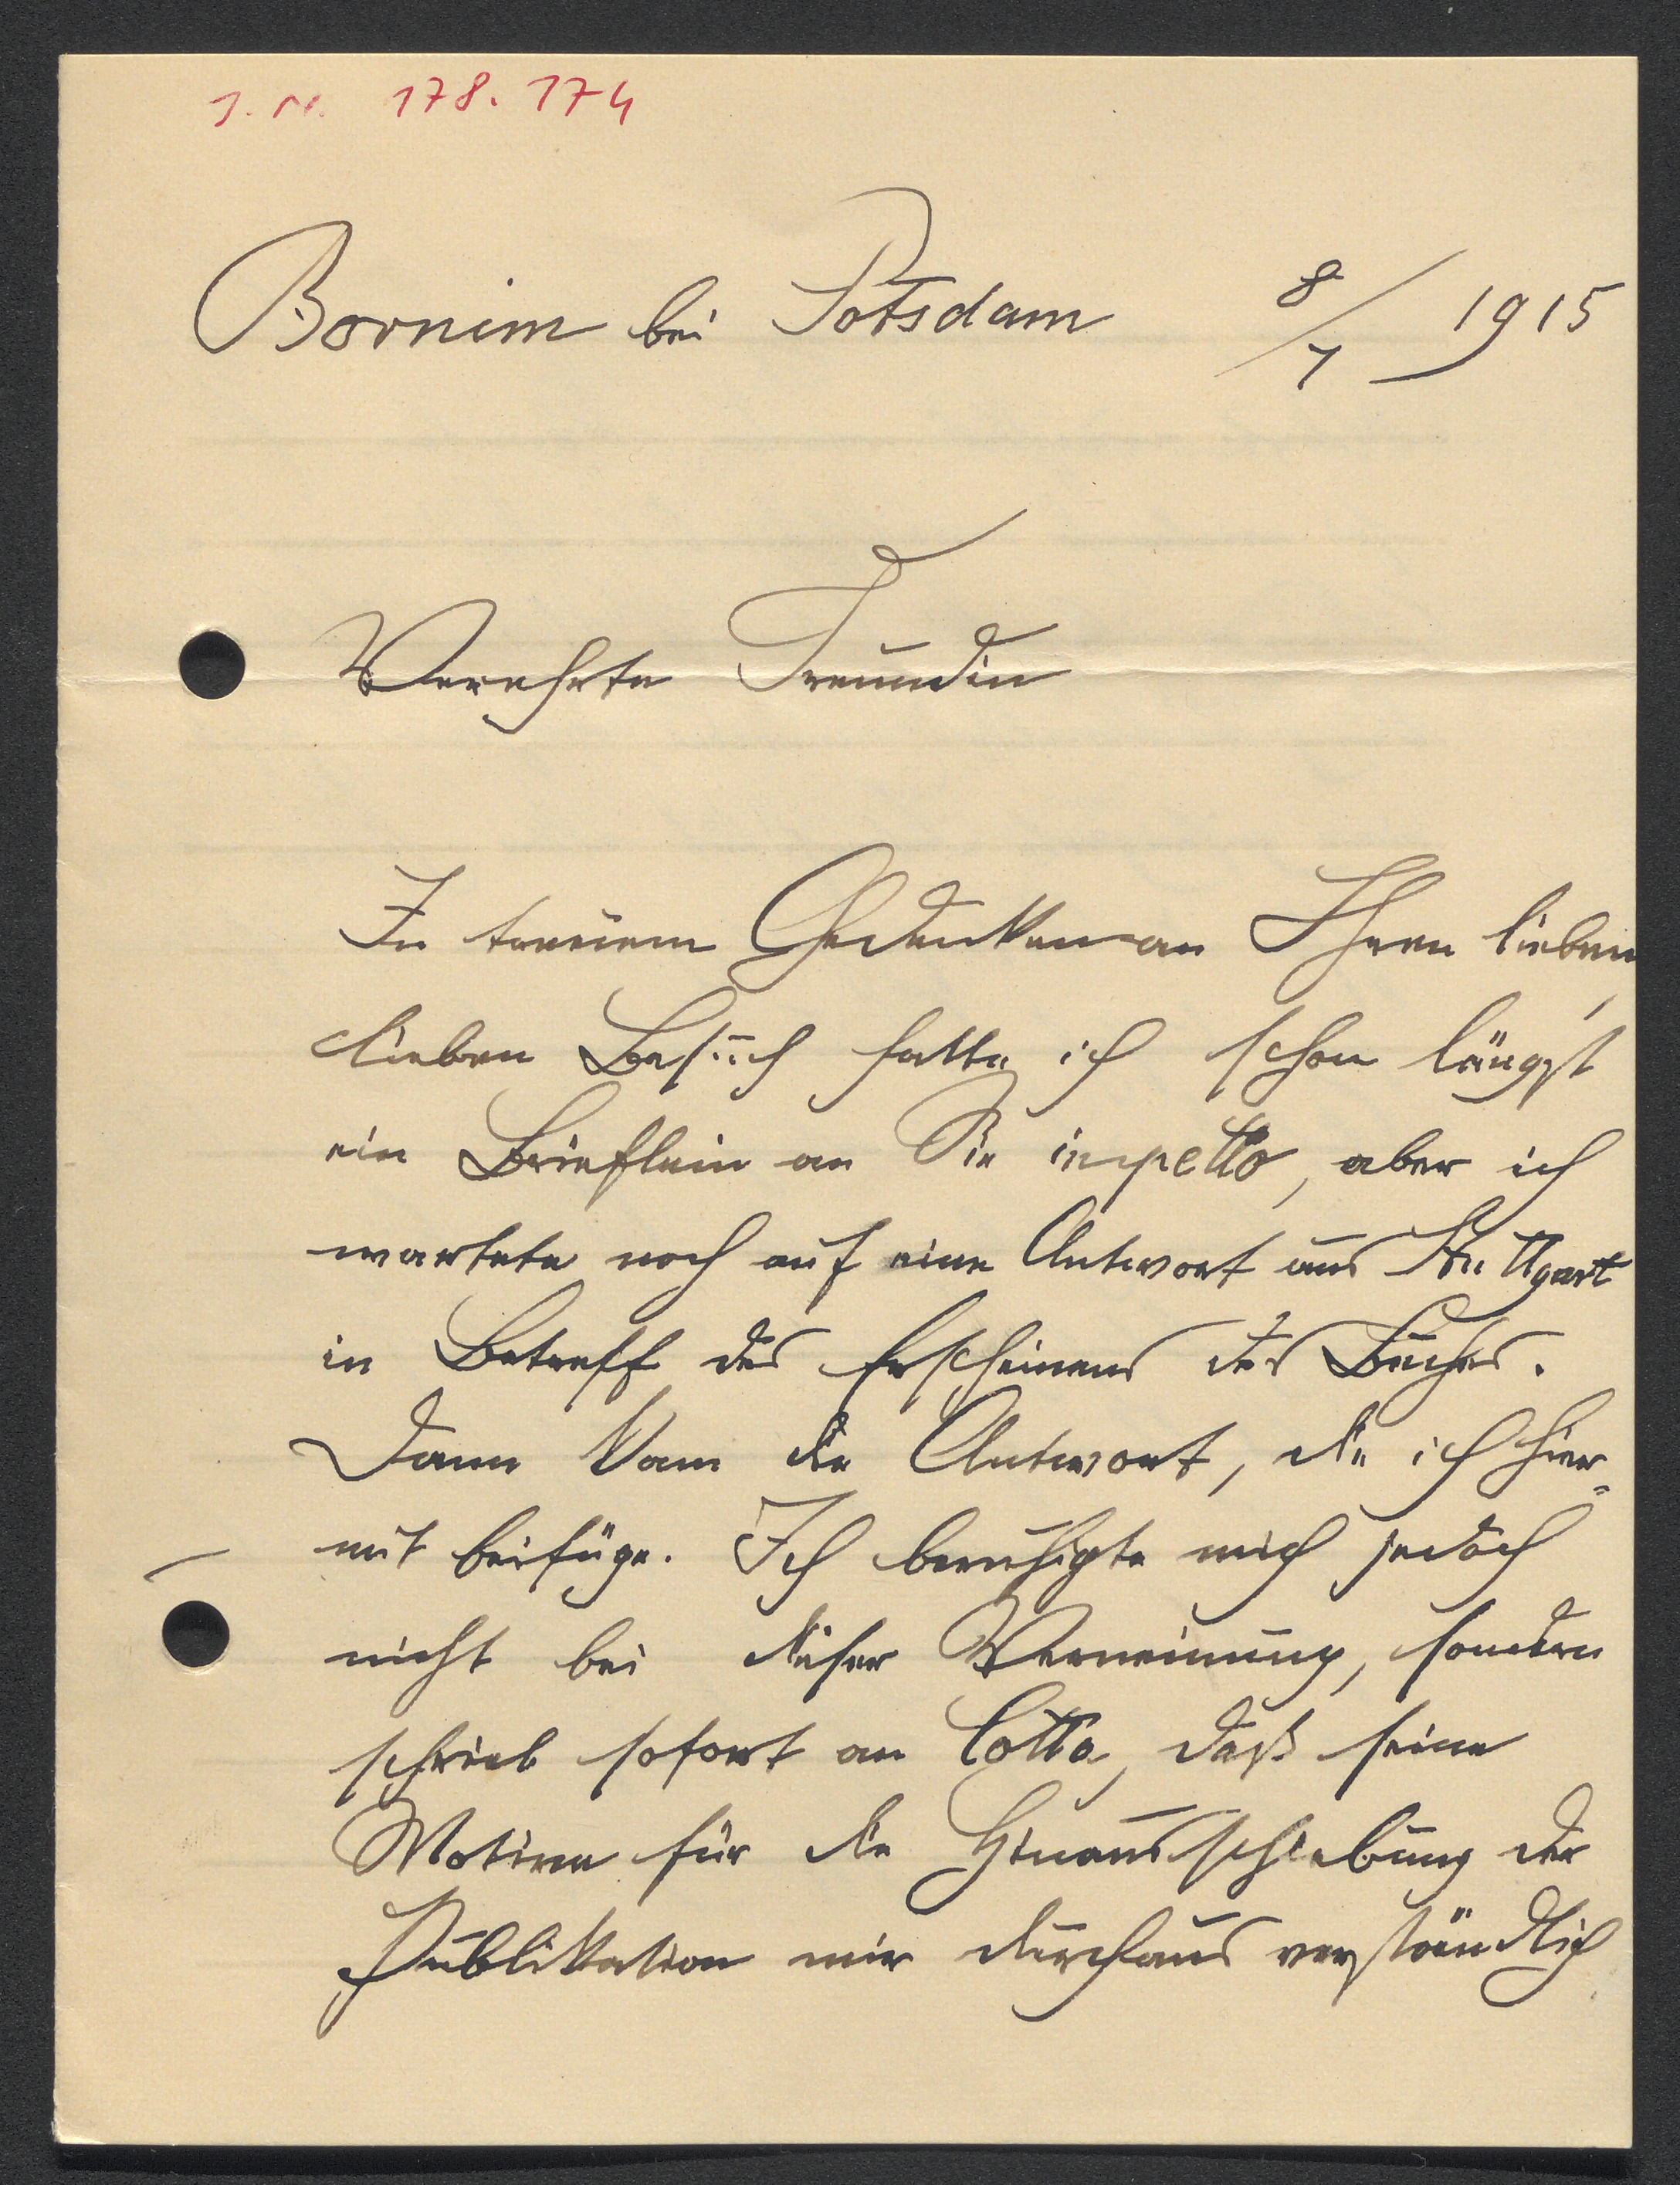 J. N. 178.174
Bornim bei Potsdam 8/7 1915
Verehrte Freundin
In treuem Gedenken an Ihren lieben,
lieben Besuch hatte ich schon längst
ein Brieflein an Sie in petto, aber ich
wartete noch auf eine Antwort aus Stuttgart
in Betreff des Erscheinens des Buches.
Dann kam die Antwort, die ich hier-
mit beifüge. Ich beruhigte mich jedoch
nicht bei dieser Verneinung, sondern
schrieb sofort an Cotta, daß seine
Motive für die Hinausschiebung der
Publikation mir durchaus verständlich